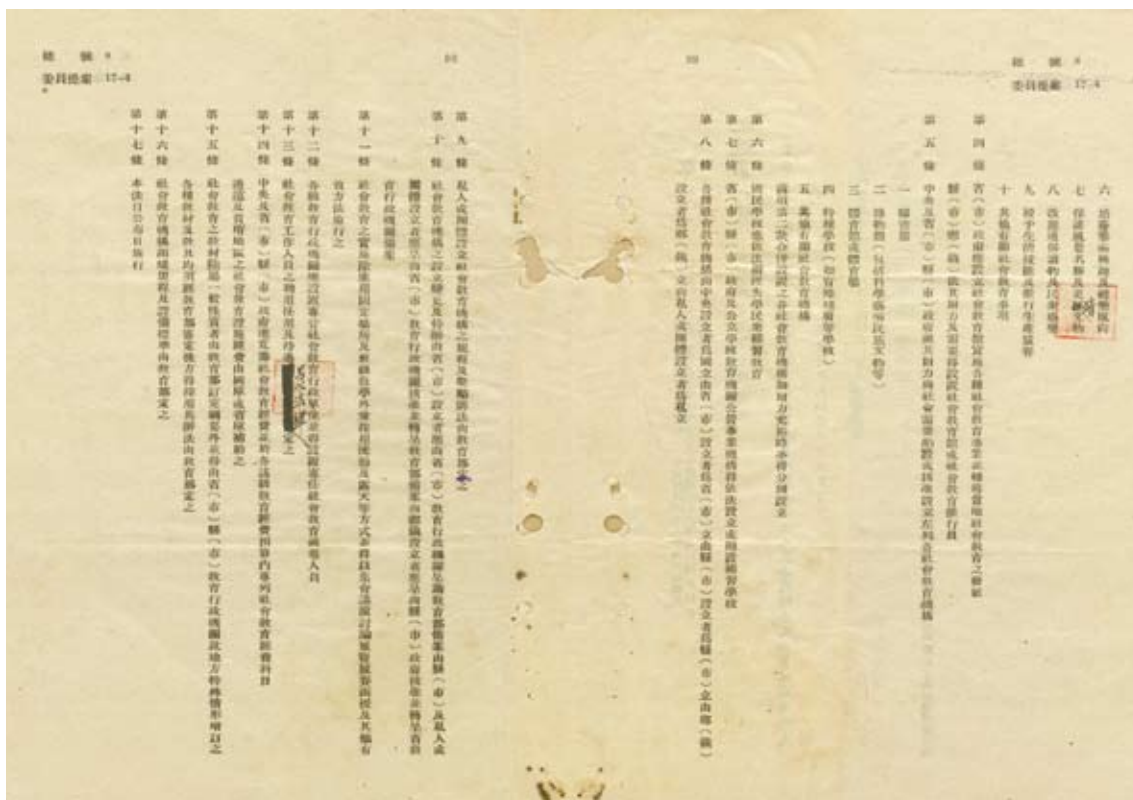 總號 8
委員提案 17-4
六 培養藝術興趣及禮樂風尚
七 保護風景名勝及史蹟文物
八 改進通俗讀物及民衆娛樂
九 授予生活技能及推行生產競賽
十 其他有關社會教育事項
第四條 省(市)政府應設立社會教育館實施各種社會教育事業並輔導當地社會教育之發展
縣(市)鄉(鎮)依其財力及需要得設置社會教育館或社會教育推行員
第五條 中央及省(市)縣(市)政府視其財力與社會需要得設或核准設立左列各社會教育機構
一 圖書館
二 博物館(包括科學藝術民族文物等)
三 體育館或體育場
四 特殊學校(如盲啞傷殘等學校)
五 其他有關社會教育機構
前項第二款合併設置之各社會教育機構如財力充裕時亦得分別設立
第六條 國民學校應依法辦理失學民衆補習教育
第七條 省(市)縣(市)政府及公立學校教育機關公營事業機構得依法設立或附設補習學校
第八條 各種社會教育機構由中央設立者爲國立由省(市)設立者爲省(市)立由縣(市)設立者爲縣(市)立由鄉(鎮)
設立者爲鄉(鎮)立由私人或團體設立者爲私立
總號 8
委員提案 17-4
第九條 私人或團體設立社會教育機構之規程及獎勵辦法由教育部定之
第十條 社會教育機構之設立變更及停辦由省(市)設立者應由省(市)教育行政機關呈請教育部備案由縣(市)及私人或
團體設立者應呈由省(市)教育行政機關核准並轉呈教育部備案由鄉鎮設立者應呈由縣(市)政府核准並轉呈省教
育行政機關備案
第十一條 社會教育之實施除應用固定場所及班級教學外兼採用流動及露天等方式並得以集會講演討論展覽競賽函授及其他有
效方法施行之
第十二條 各級教育行政機關應設置專管社會教育行政單位並得設置專任社會教育視導人員
第十三條 社會教育工作人員之聘用任用及待遇
定之
第十四條 中央及省(市)縣(市)政府應寬籌社會教育經費並於各該級教育經費預算內專列社會教育經費科目
邊遠及貧瘠地區之社會教育設施經費由國庫或省庫補助之
第十五條 社會教育之教材除屬一般性質者由教育部訂定綱要外並得由省(市)縣(市)教育行政機關就地方特殊情形增訂之
各種教材及教具均須經教育部審定後方得採用其辦法由教育部定之
第十六條 社會教育機構組織規程及設備標準由教育部定之
第十七條 本法自公布日施行